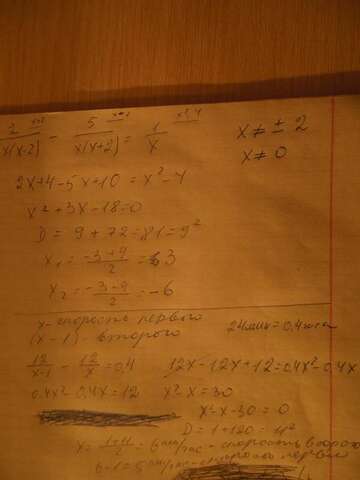 2/(x(x-2)) - 5/(x(x+2)) = 1/x x ≠ ± 2
x ≠ 0
2x+4-5x+10 = x²-4
x²+3x-18=0
D = 9+72=81=9²
x₁ = (-3+9)/2 = 3
x₂ = (-3-9)/2 = -6
x - скорость первого
(x-1) - второго 24мин = 0,4 часа
12/(x-1) - 12/x = 0,4 12x-12x+12=0,4x²-0,4x
0,4x²-0,4x=12 x²-x=30
x²-x-30=0
D=1+120=11²
x = (1+11)/2 = 6 км/час - скорость второго
6-1=5 км/час - скорость первого